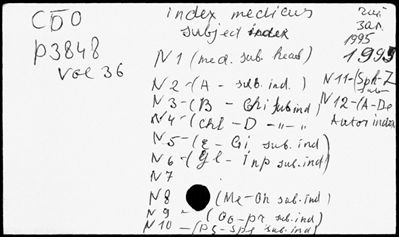 CDO
p3848
vol 36
index medicus
subject index
1995
1995
N1 (med. sub head)
N2 - (A - sub. ind.)
N3 - (B - Chi sub ind)
N4 - (Chl - D - " - "
N5 - (E - Gi sub. ind)
N6 - (Gl - Inp sub. ind)
N7
N8 (Me - On sub. ind)
N9 - (Oo - pr sub. ind)
N10 - (Ps - Spe sub. ind)
N11 - (Sph - Z
N12 - (A - De
Autor index